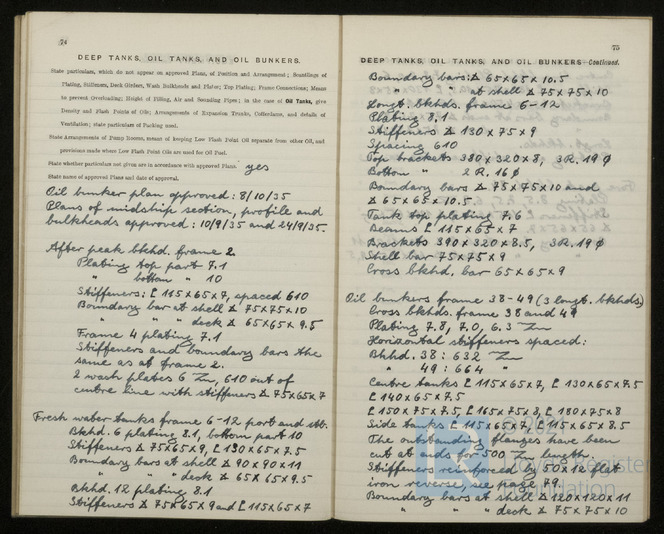 74
DEEP TANKS, OIL TANKS, AND OIL BUNKERS.
State particulars, which do not appear on approved Plans, of Position and Arrangement; Scantlings of
Plating, Stiffeners, Deck Girders, Wash Bulkheads and Plates; Top Plating; Frame Connections; Means
to prevent Overloading; Height of Filling, Air and Sounding Pipes; in the case of Oil Tanks, give
Density and Flash Points of Oils; Arrangements of Expansion Trunks, Cofferdams, and details of
Ventilation; state particulars of Packing used.
State Arrangements of Pump Rooms, means of keeping Low Flash Point Oil separate from other Oil, and
provisions made where Low Flash Point Oils are used for Oil Fuel.
State whether particulars not given are in accordance with approved Plans. yes
State name of approved Plans and date of approval.
Oil bunker plan approved: 8/10/35
Plans of midship section, profile and
bulkheads approved: 10/9/35 and 24/9/35.
After peak bkhd. frame 2
Plating top part 7.1
" bottom " 10
Stiffeners: [ 115x65x7, spaced 610
Boundary bar at shell ∆ 75x75x10
" " " deck ∆ 65x65x9.5
Frame 4 plating 7.1
Stiffeners and boundary bars the
same as at frame 2.
2 wash plates 6 m/m, 610 out of
centre line with stiffeners ∆ 75x65x7
Fresh water tanks frame 6-12 port and stb.
Bkhd. 6 plating 8.1, bottom part 10
Stiffeners ∆ 75x65x9, [ 130x65x7.5
Boundary bars at shell ∆ 90x90x11
" " " deck ∆ 65x65x9.5
Bkhd. 12 plating 8.1
Stiffeners ∆ 75x65x9 and [ 115x65x7
75
DEEP TANKS, OIL TANKS, AND OIL BUNKERS—Continued.
Boundary bars: ∆ 65x65x10.5
" " at shell ∆ 75x75x10
Longt. bkhds. frame 6-12
Plating 8.1
Stiffeners ∆ 130x75x9
Spacing 610
Top brackets 380x320x8, 3R. 19 ø
Bottom " 2 R. 16 ø
Boundary bars ∆ 75x75x10 and
∆ 65x65x10.5
Tank top plating 7.6
Beams [ 115x65x7
Brackets 390x320x8.5, 3R. 19 ø
Shell bar 75x75x9
Cross bkhd. bar 65x65x9
Oil bunkers frame 38-49 (3 longt. bkhds)
Cross bkhds. frame 38 and 49
Plating 7.8, 7.0, 6.3 m/m
Horizontal stiffeners spaced:
Bkhd. 38: 632 m/m
" 49: 664 "
Centre tanks [ 115x65x7, [ 130x65x7.5
[ 140x65x7.5
[ 150x75x7.5, [ 165x75x8, [ 180x75x8
Side tanks [ 115x65x7, [ 115x65x8.5
The outstanding flanges have been
cut at ends for 500 m/m length.
Stiffeners reinforced by 50x12 flat
iron reverse, see page 79.
Boundary bars at shell ∆ 120x120x11
" " " deck ∆ 75x75x10